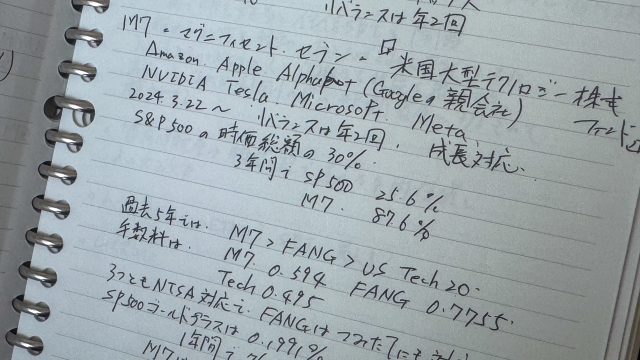 リバランスは年2回
M7 = マグニフィセント・セブン = 米国大型テクノロジー株式
Amazon. Apple Alphabet (Googleの親会社) ファンド
NVIDIA Tesla. Microsoft. Meta.
2024.3.22〜 リバランスは年2回. 成長対応.
S&P500の時価総額の30%.
3年間で SP500 25.6%
M7. 87.6%
過去5年では. M7 > FANG > US Tech 20.
手数料は. M7 0.594 FANG 0.7755.
Tech 0.495
3つともNISA対応で. FANGはつみたてにも
SP500ゴールドプラスは 0.1991%
1年間で
M7